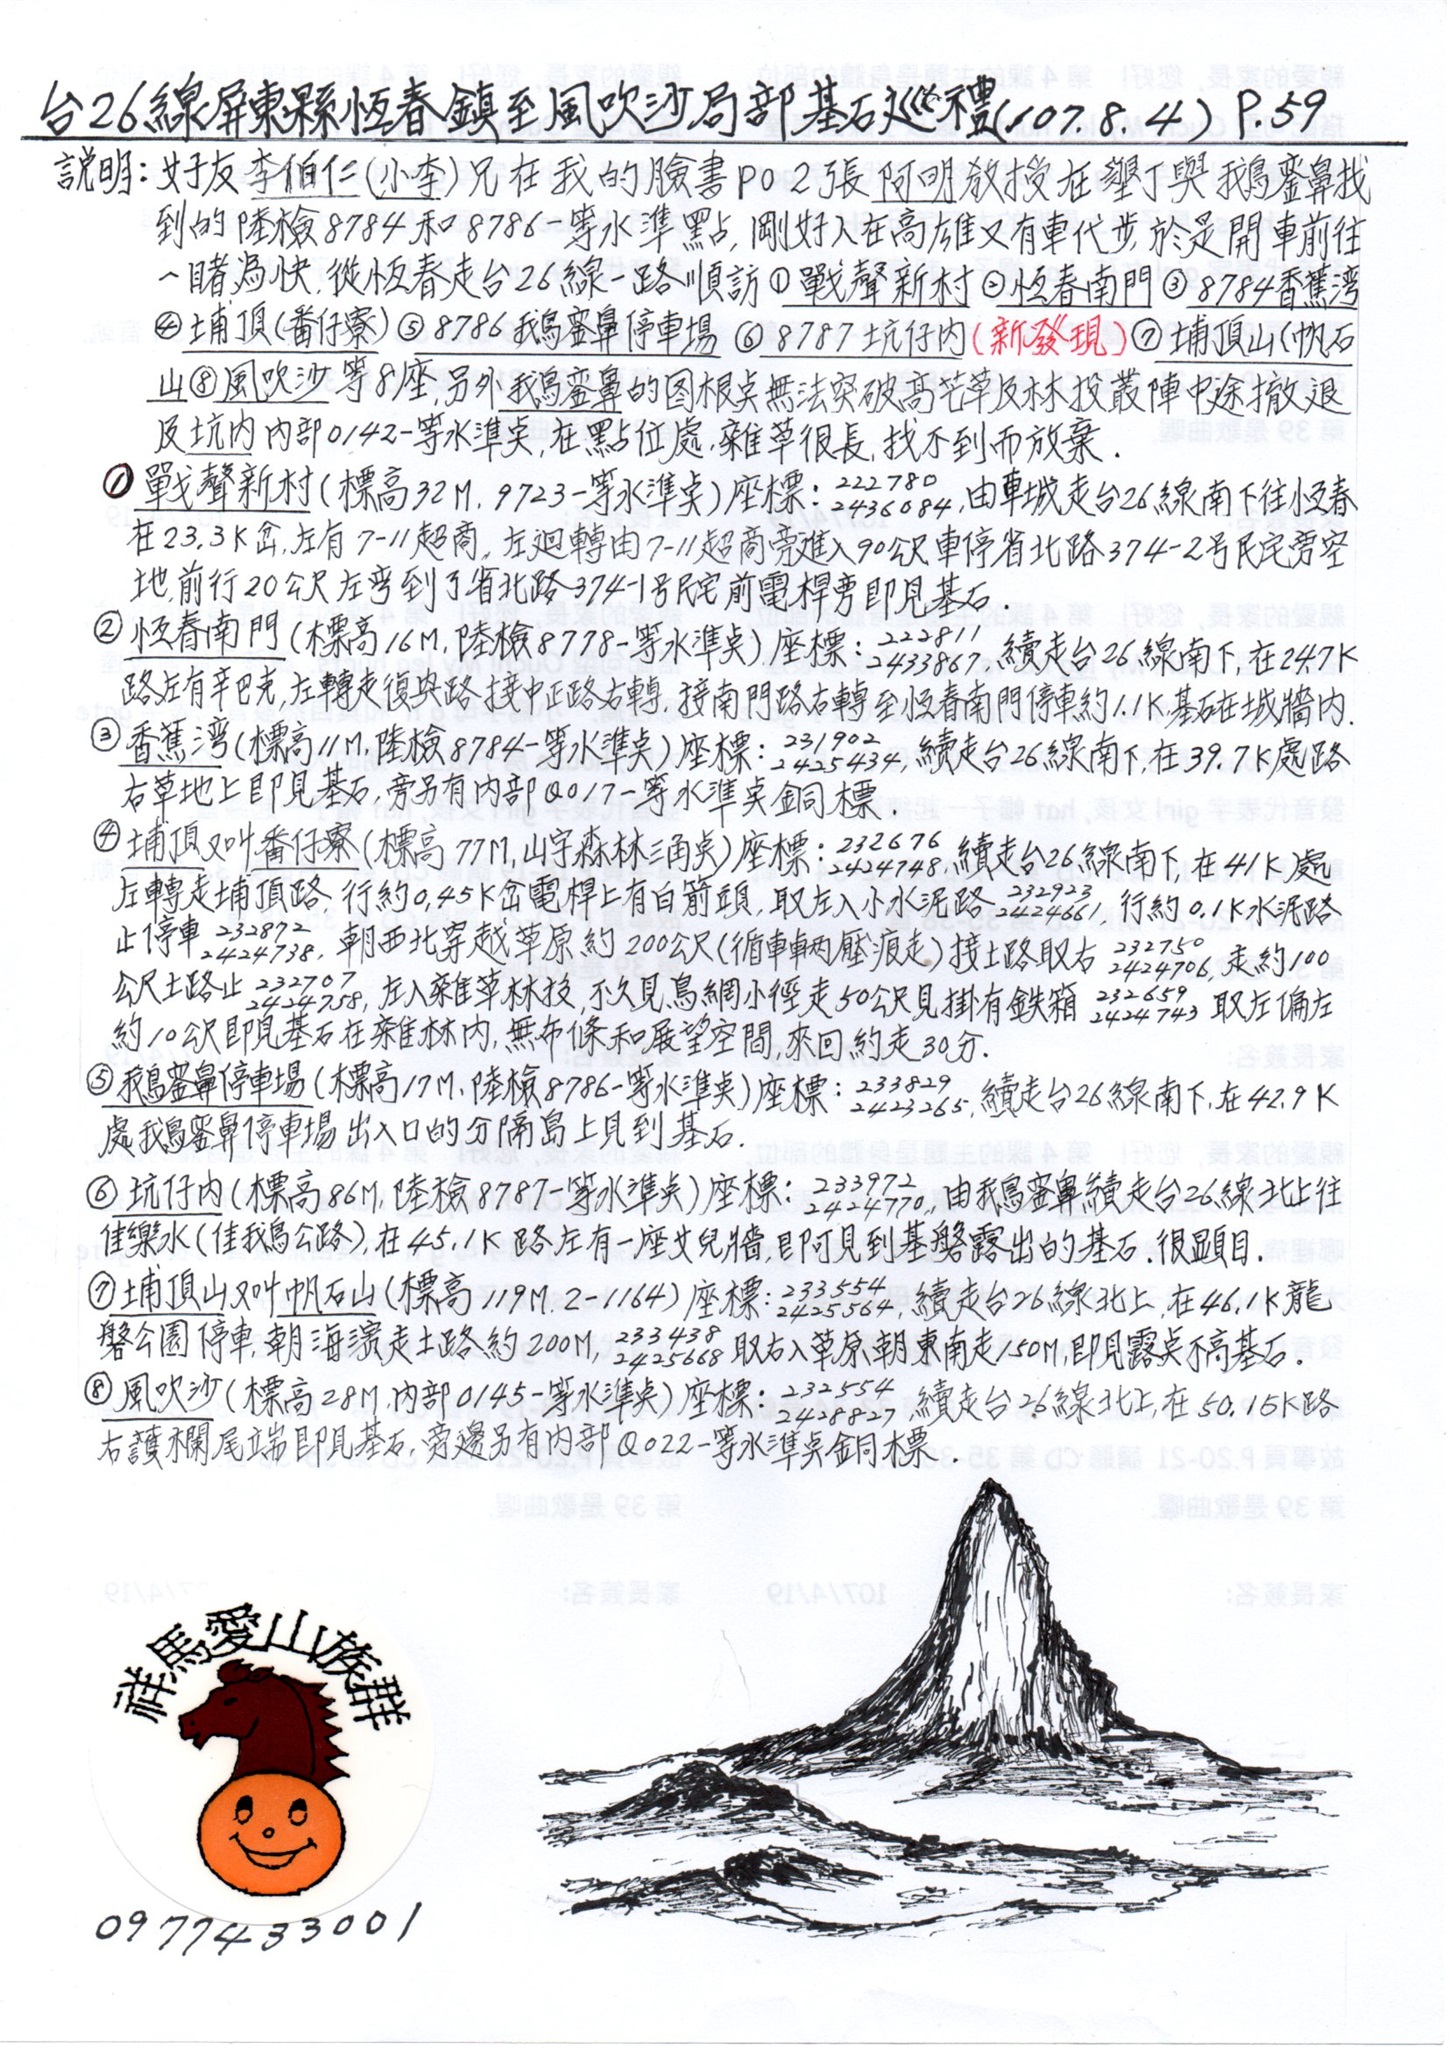 台26線屏東縣恆春鎮至風吹沙局部基石巡禮(107.8.4) P.59
說明:好友李伯仁(小李)兄在我的臉書PO 2張阿明教授在墾丁與鵝鑾鼻找
到的陸檢8784和8786一等水準點,剛好人在高雄又有車代步,於是開車前往
一睹為快,從恆春走台26線一路順訪①戰聲新村②恆春南門③8784香蕉灣
④埔頂(番仔寮)⑤8786鵝鑾鼻停車場⑥8787坑仔內(新發現)⑦埔頂山(帆石
山⑧風吹沙等8座,另外鵝鑾鼻的图根桌無法突破高芒草及林投叢陣中途撤退
及坑內內部0142一等水準桌,在點位處,雜草很長,找不到而放棄.
①戰聲新村(標高32M,9723一等水準桌)座標:222780 2436084,由車城走台26線南下往恆春
在23.3K岔,左有7-11超商,左迴轉由7-11超商旁進入90公尺車停省北路374-2号民宅旁空
地,前行20公尺左弯到了省北路374-1号民宅前電桿旁即見基石.
②恆春南門(標高16M,陸檢8778一等水準桌)座標:222811 2433867,續走台26線南下,在24.7K
路左有辛巴克,左轉走復興路,接中正路右轉,接南門路右轉至恆春南門停車約1.1K基石在城牆內.
③香蕉灣(標高11M,陸檢8784一等水準桌)座標:231902 2425434,續走台26線南下,在39.7K處路
右草地上即見基石,旁另有內部Q017一等水準桌銅標.
④埔頂又叫番仔寮(標高77M,山字森林三角桌)座標:232676 2424748續走台26線南下,在41K處
左轉走埔頂路,行約0.45K岔電桿上有白箭頭,取左入小水泥路232923 2424661,行約0.1K水泥路
止停車232872 2424738,朝西北穿越草原約200公尺(循車輛壓痕走)接土路取右232750 2424706,走約100
公尺土路止232707 2424758,左入雜草林技,不久見鳥網小徑走50公尺見掛有鉄箱232659 2424743取左偏左
約10公尺即見基石在雜林內,無布條和展望空間,來回約走30分.
⑤鵝鑾鼻停車場(標高17M,陸檢8786一等水準桌)座標:233829 2423265,續走台26線南下,在42.9K
處鵝鑾鼻停車場出入口的分隔島上見到基石.
⑥坑仔內(標高86M,陸檢8787一等水準桌)座標:233972 2424770,由鵝鑾鼻續走台26線北上往
佳樂水(佳鵝公路)在45.1K路左有一座女兒牆,即可見到基磐露出的基石.很顕目.
⑦埔頂山又叫帆石山(標高119M,2-1164)座標:233554 2425564,續走台26線北上,在46.1K龍
磐公園停車,朝海濱走土路約200M,233438 2425668取右入草原朝東南走150M,即見露桌不高基石.
⑧風吹沙(標高28M,內部0145一等水準桌)座標:232554 2428827,續走台26線北上,在50.15K路
右護欄尾端即見基石,旁邊另有內部Q022一等水準桌銅標.
祥馬愛山族群
0977433001